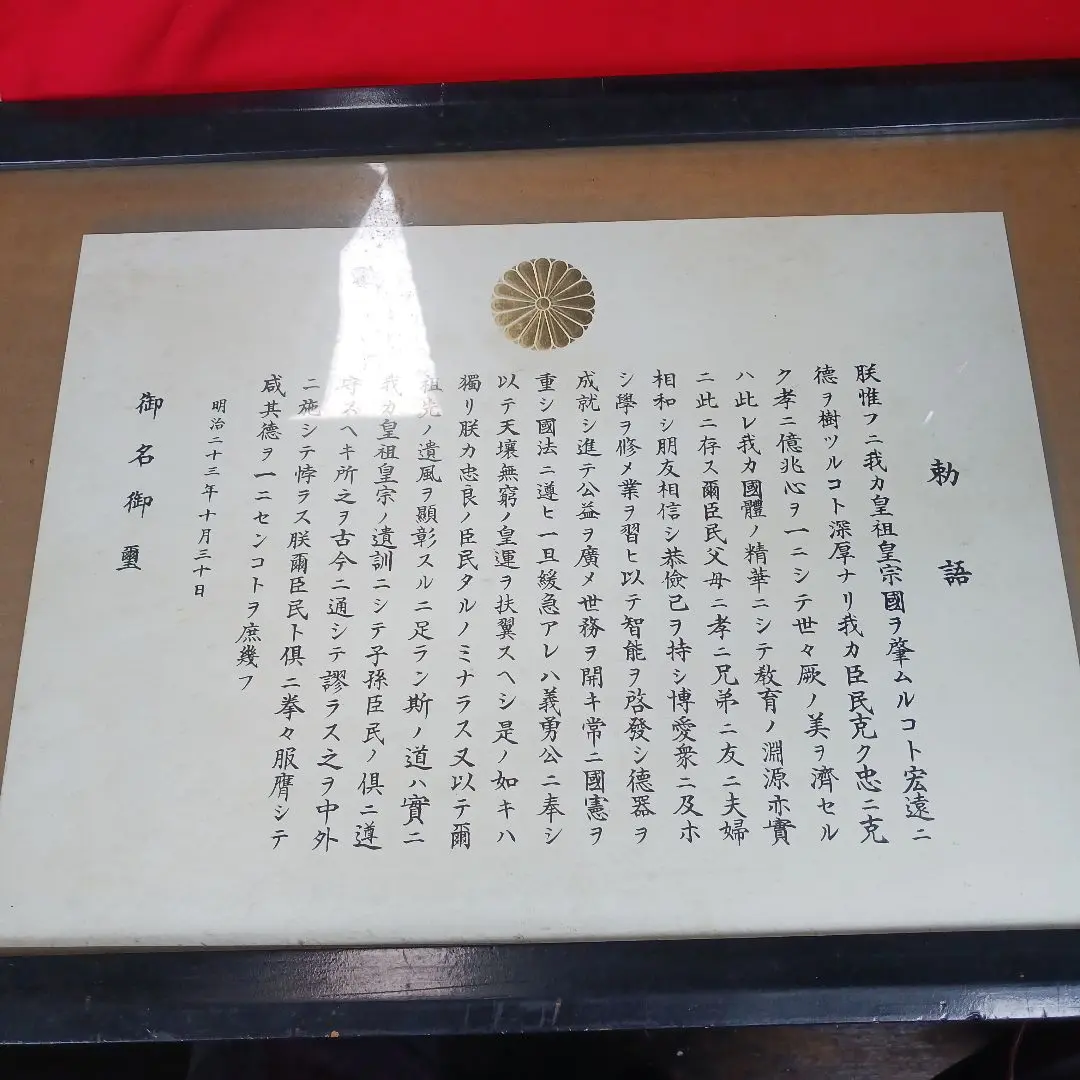 勅語
朕惟フニ我カ皇祖皇宗國ヲ肇ムルコト宏遠ニ
德ヲ樹ツルコト深厚ナリ我カ臣民克ク忠ニ克
ク孝ニ億兆心ヲ一ニシテ世々厥ノ美ヲ濟セル
ハ此レ我カ國體ノ精華ニシテ敎育ノ淵源亦實
ニ此ニ存ス爾臣民父母ニ孝ニ兄弟ニ友ニ夫婦
相和シ朋友相信シ恭儉己ヲ持シ博愛衆ニ及ホ
シ學ヲ修メ業ヲ習ヒ以テ智能ヲ啓發シ德器ヲ
成就シ進テ公益ヲ廣メ世務ヲ開キ常ニ國憲ヲ
重シ國法ニ遵ヒ一旦緩急アレハ義勇公ニ奉シ
以テ天壤無窮ノ皇運ヲ扶翼スヘシ是ノ如キハ
獨リ朕カ忠良ノ臣民タルノミナラス又以テ爾
祖先ノ遺風ヲ顯彰スルニ足ラン斯ノ道ハ實ニ
我カ皇祖皇宗ノ遺訓ニシテ子孫臣民ノ俱ニ遵
守スヘキ所之ヲ古今ニ通シテ謬ラス之ヲ中外
ニ施シテ悖ラス朕爾臣民ト俱ニ拳々服膺シテ
咸其德ヲ一ニセンコトヲ庶幾フ
明治二十三年十月三十日
御名御璽